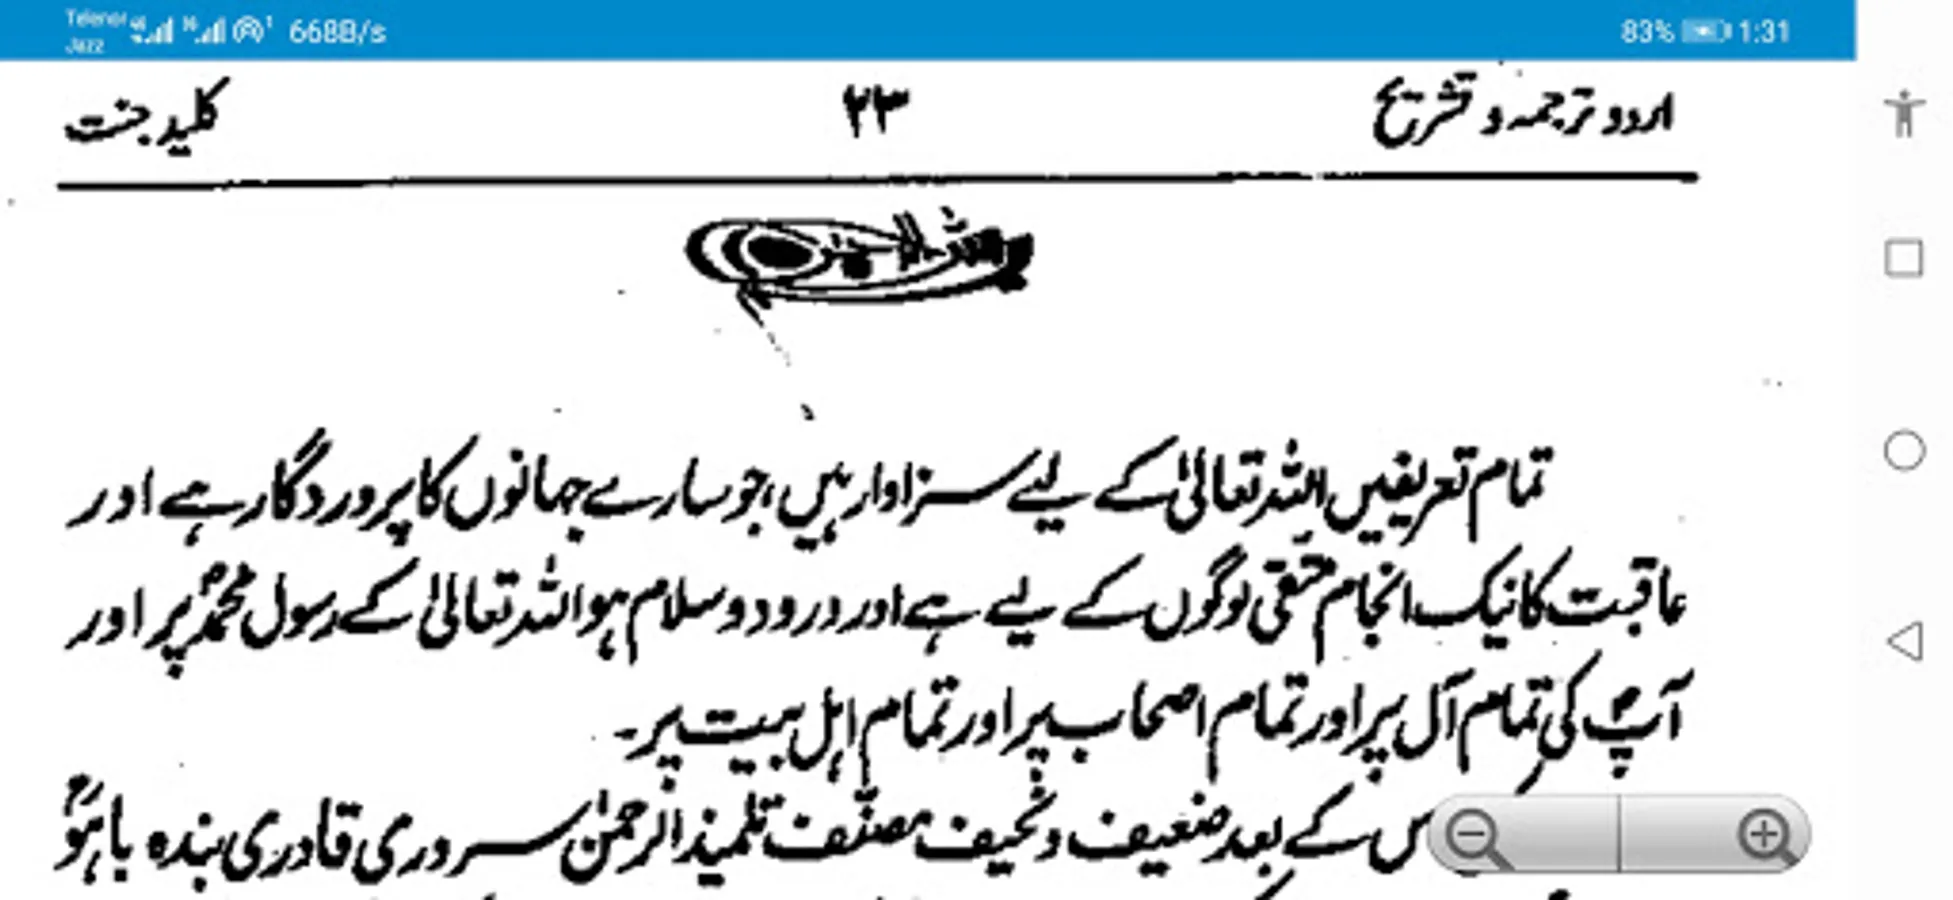 Telenor
Jazz
668B/s
83% 1:31
اردو ترجمہ و تشریح ۲۳ کلید جنت
تمام تعریفیں اللہ تعالیٰ کے لیے سزاوار ہیں، جو سارے جہانوں کا پروردگار ہے اور
عاقبت کا نیک انجام متقی لوگوں کے لیے ہے اور درود و سلام ہو اللہ تعالیٰ کے رسول محمدؐ پر اور
آپؐ کی تمام آل پر اور تمام اصحاب پر اور تمام اہل بیت پر۔
س کے بعد ضعیف و نحیف مصنّف تلمیذ الرحمٰن سروری قادری بندہ باھُوؒ